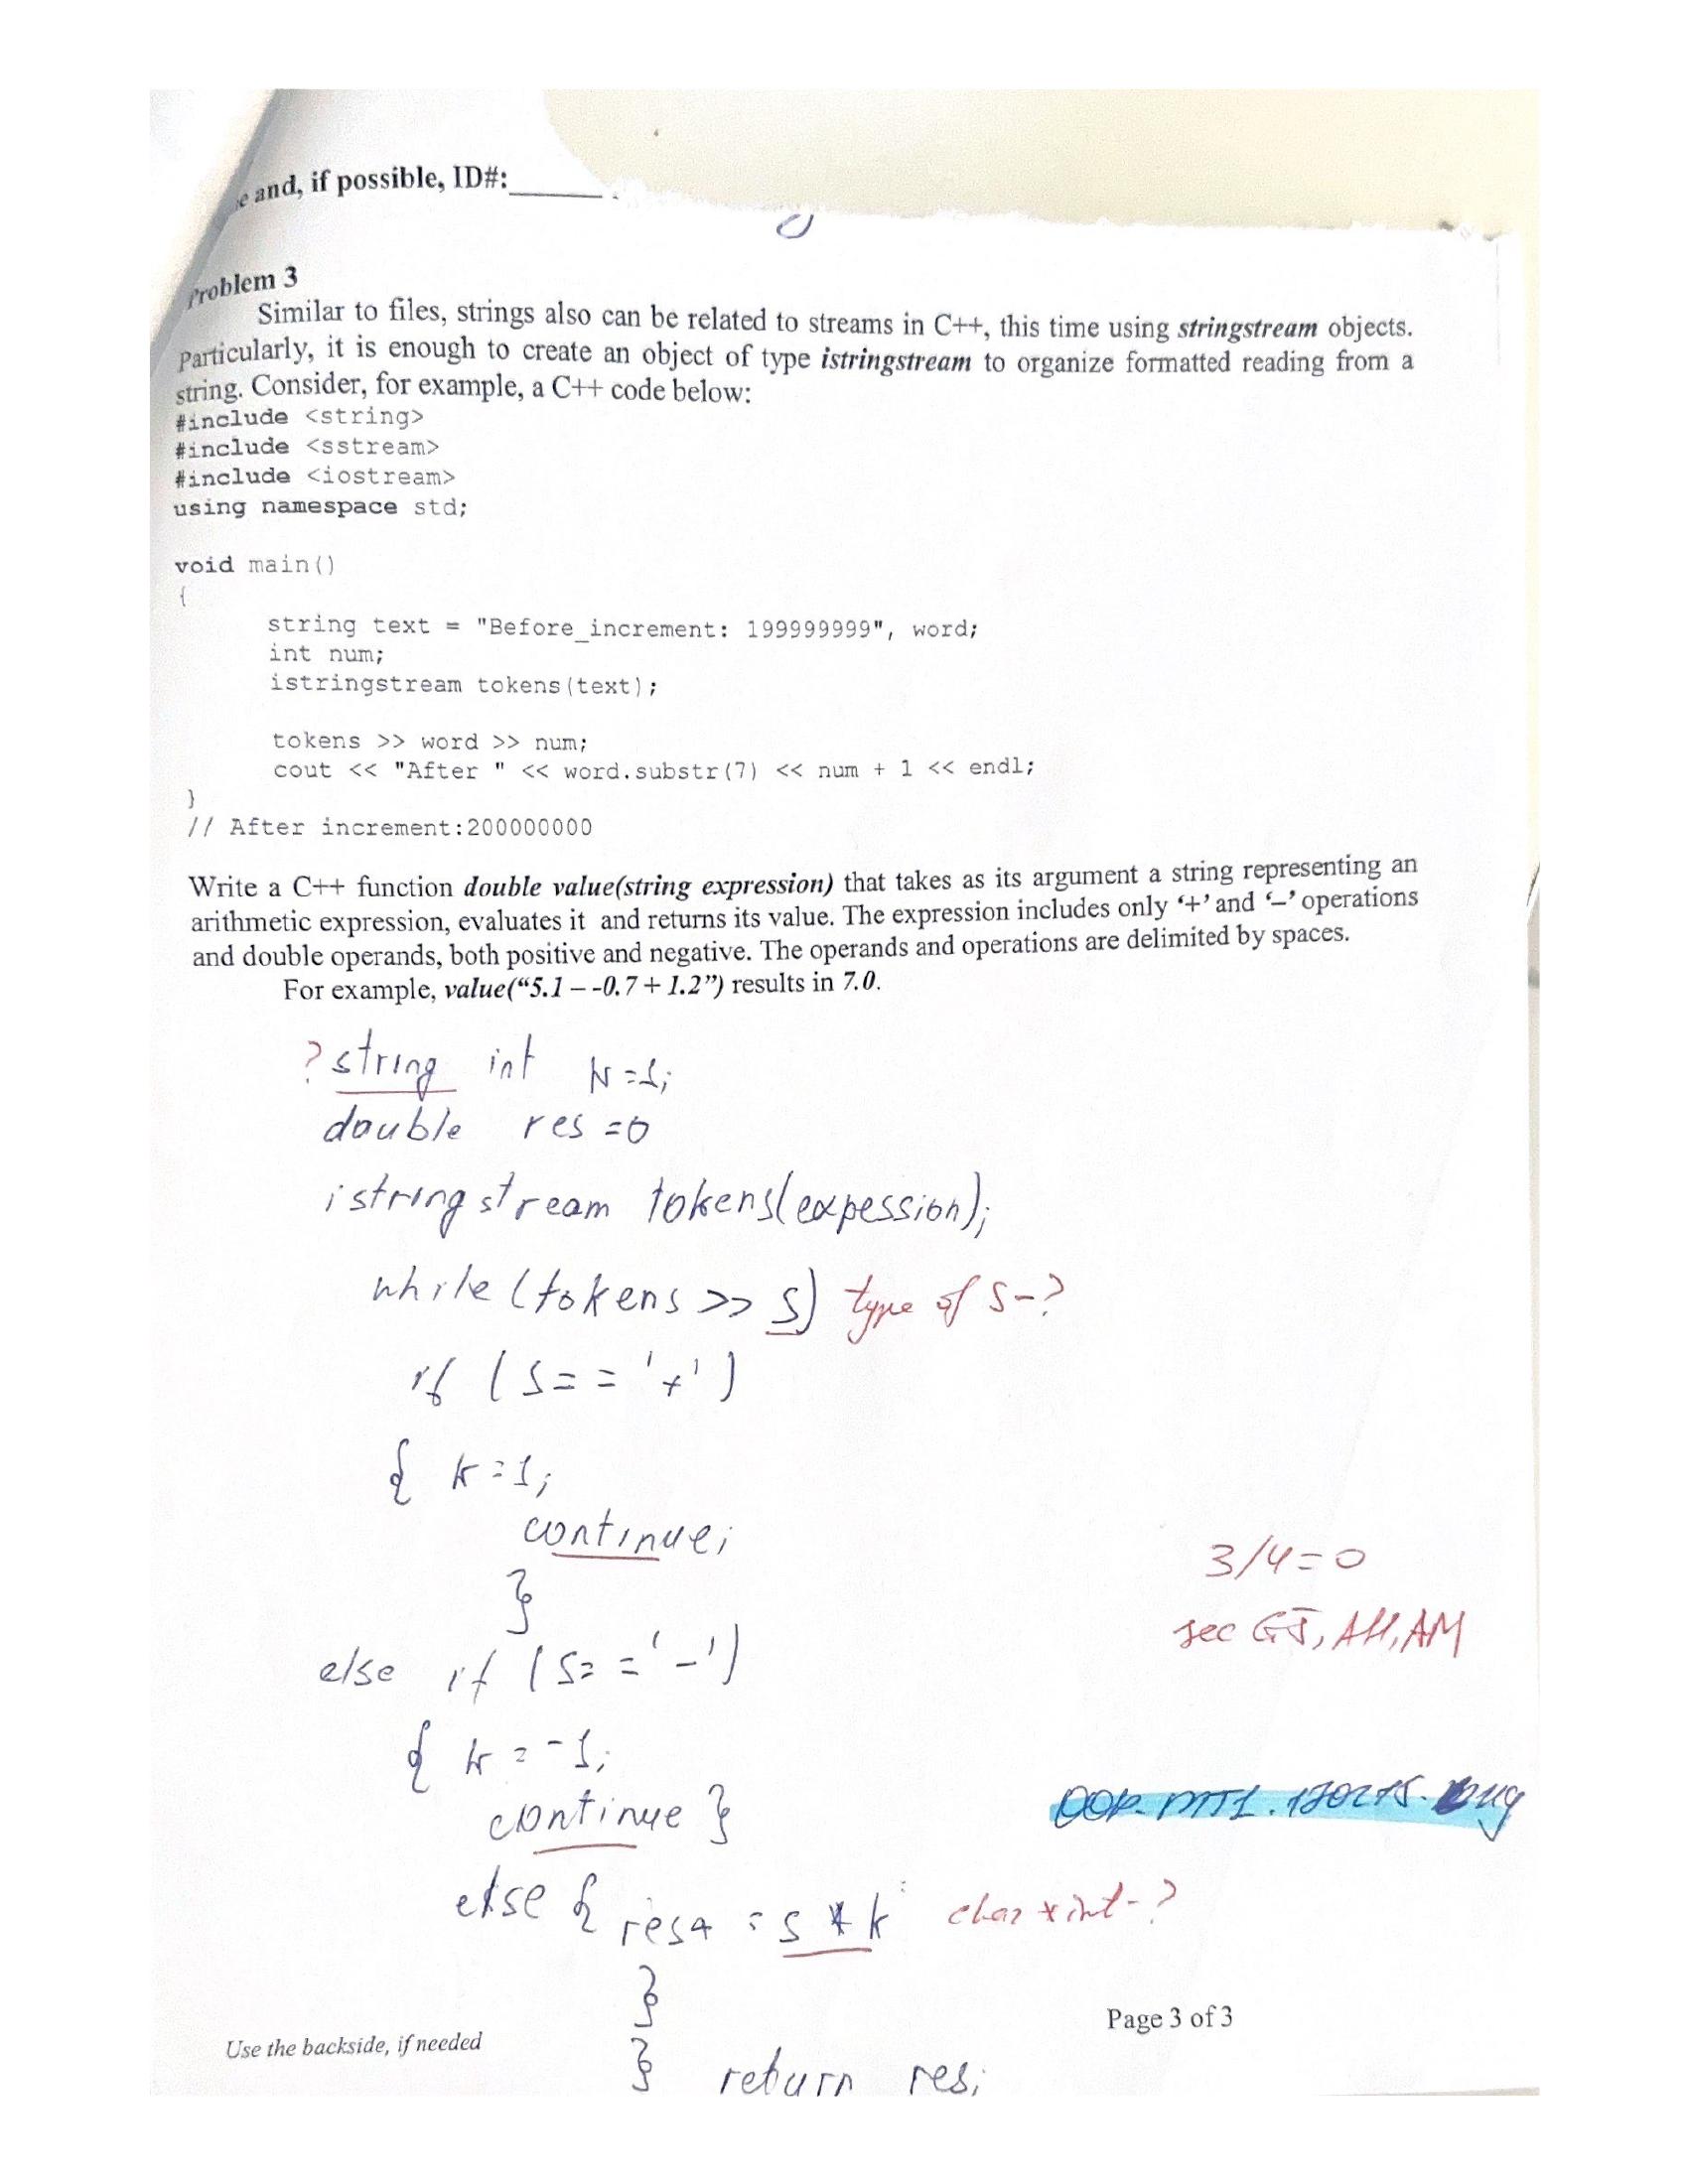 e and, if possible, ID#:______
Problem 3
Similar to files, strings also can be related to streams in C++, this time using stringstream objects.
Particularly, it is enough to create an object of type istringstream to organize formatted reading from a
string. Consider, for example, a C++ code below:
#include <string>
#include <sstream>
#include <iostream>
using namespace std;
void main()
{
string text = "Before_increment: 199999999", word;
int num;
istringstream tokens(text);
tokens >> word >> num;
cout << "After " << word.substr(7) << num + 1 << endl;
}
// After increment:200000000
Write a C++ function double value(string expression) that takes as its argument a string representing an
arithmetic expression, evaluates it and returns its value. The expression includes only ‘+’ and ‘–’ operations
and double operands, both positive and negative. The operands and operations are delimited by spaces.
For example, value(“5.1 – -0.7 + 1.2”) results in 7.0.
? string int k=1;
double res =0
istringstream tokens(expession);
while (tokens >> s) type of s-?
if (s== '+')
{ k=1;
continue;
}
3/4=0
see GJ, AH, AM
else if (s== '-')
{ k = -1;
continue }
OOP. MT1.
else { res+ = s * k char * int-?
}
Page 3 of 3
Use the backside, if needed
} return res;